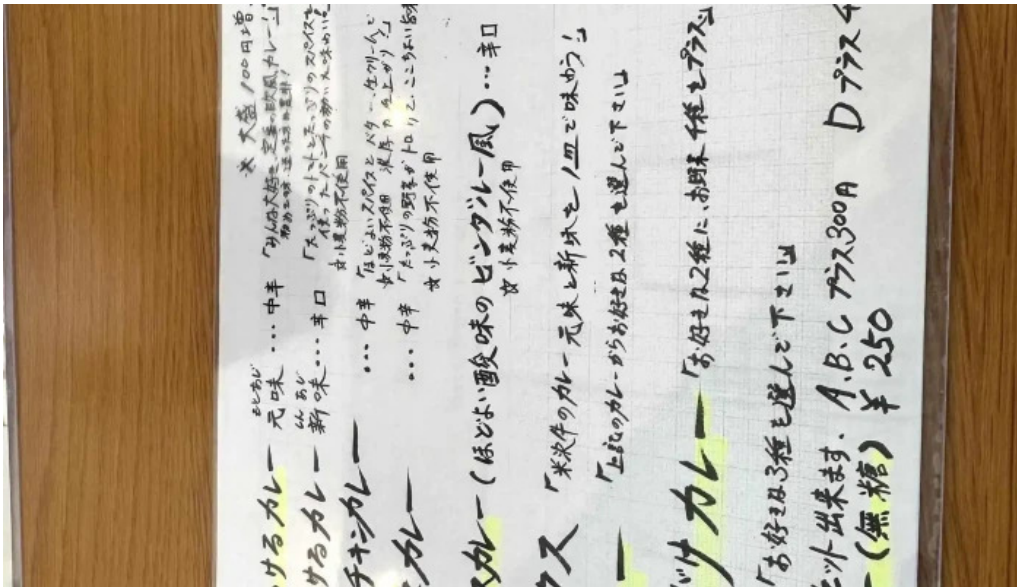 ※ 大盛 100円増.
けるカレー もとあじ 元味 … 中辛 「みんな大好き、定番の欧風カレー」
けるカレー しんあじ 新味 … 辛口 「たっぷりのトマトとたっぷりのスパイスを
使ったパンチの効いた味わい
☆小麦粉不使用
チキンカレー … 中辛 「ほどよいスパイスとバター、生クリームで
☆小麦粉不使用 濃厚な仕上がり」
カレー … 中辛 「たっぷりの野菜がトロリと、ここちよい
☆小麦粉不使用
カレー (ほどよい酸味のビンダルー風)… 辛口
☆小麦粉不使用
クス 「米次牛のカレー元味と新味を1皿で味わう!」
ー 「上記のカレーからお好きな2種を選んで下さい」
がけカレー 「お好きな2種に、お惣菜4種をプラス」
「お好きな3種を選んで下さい」
ット出来ます. A、B、C プラス300円 D プラス4
ー (無糖) ¥250